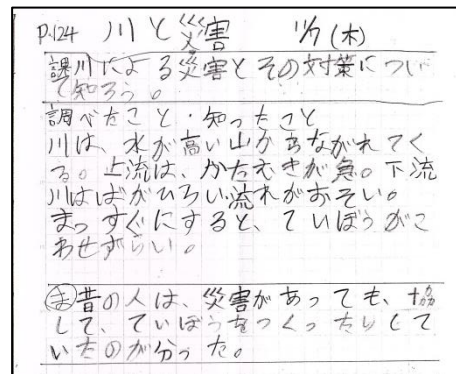 P.124 川と災害 11/7(木)
課川による災害とその対策につい
て知ろう。
調べたこと・知ったこと
川は、水が高い山からながれてく
る。上流は、かたむきが急。下流
川はばがひろい流れがおそい。
まっすぐにすると、ていぼうがこ
わせずらい。
ま昔の人は、災害があっても、協
して、ていぼうをつくったりして
いたのが分った。